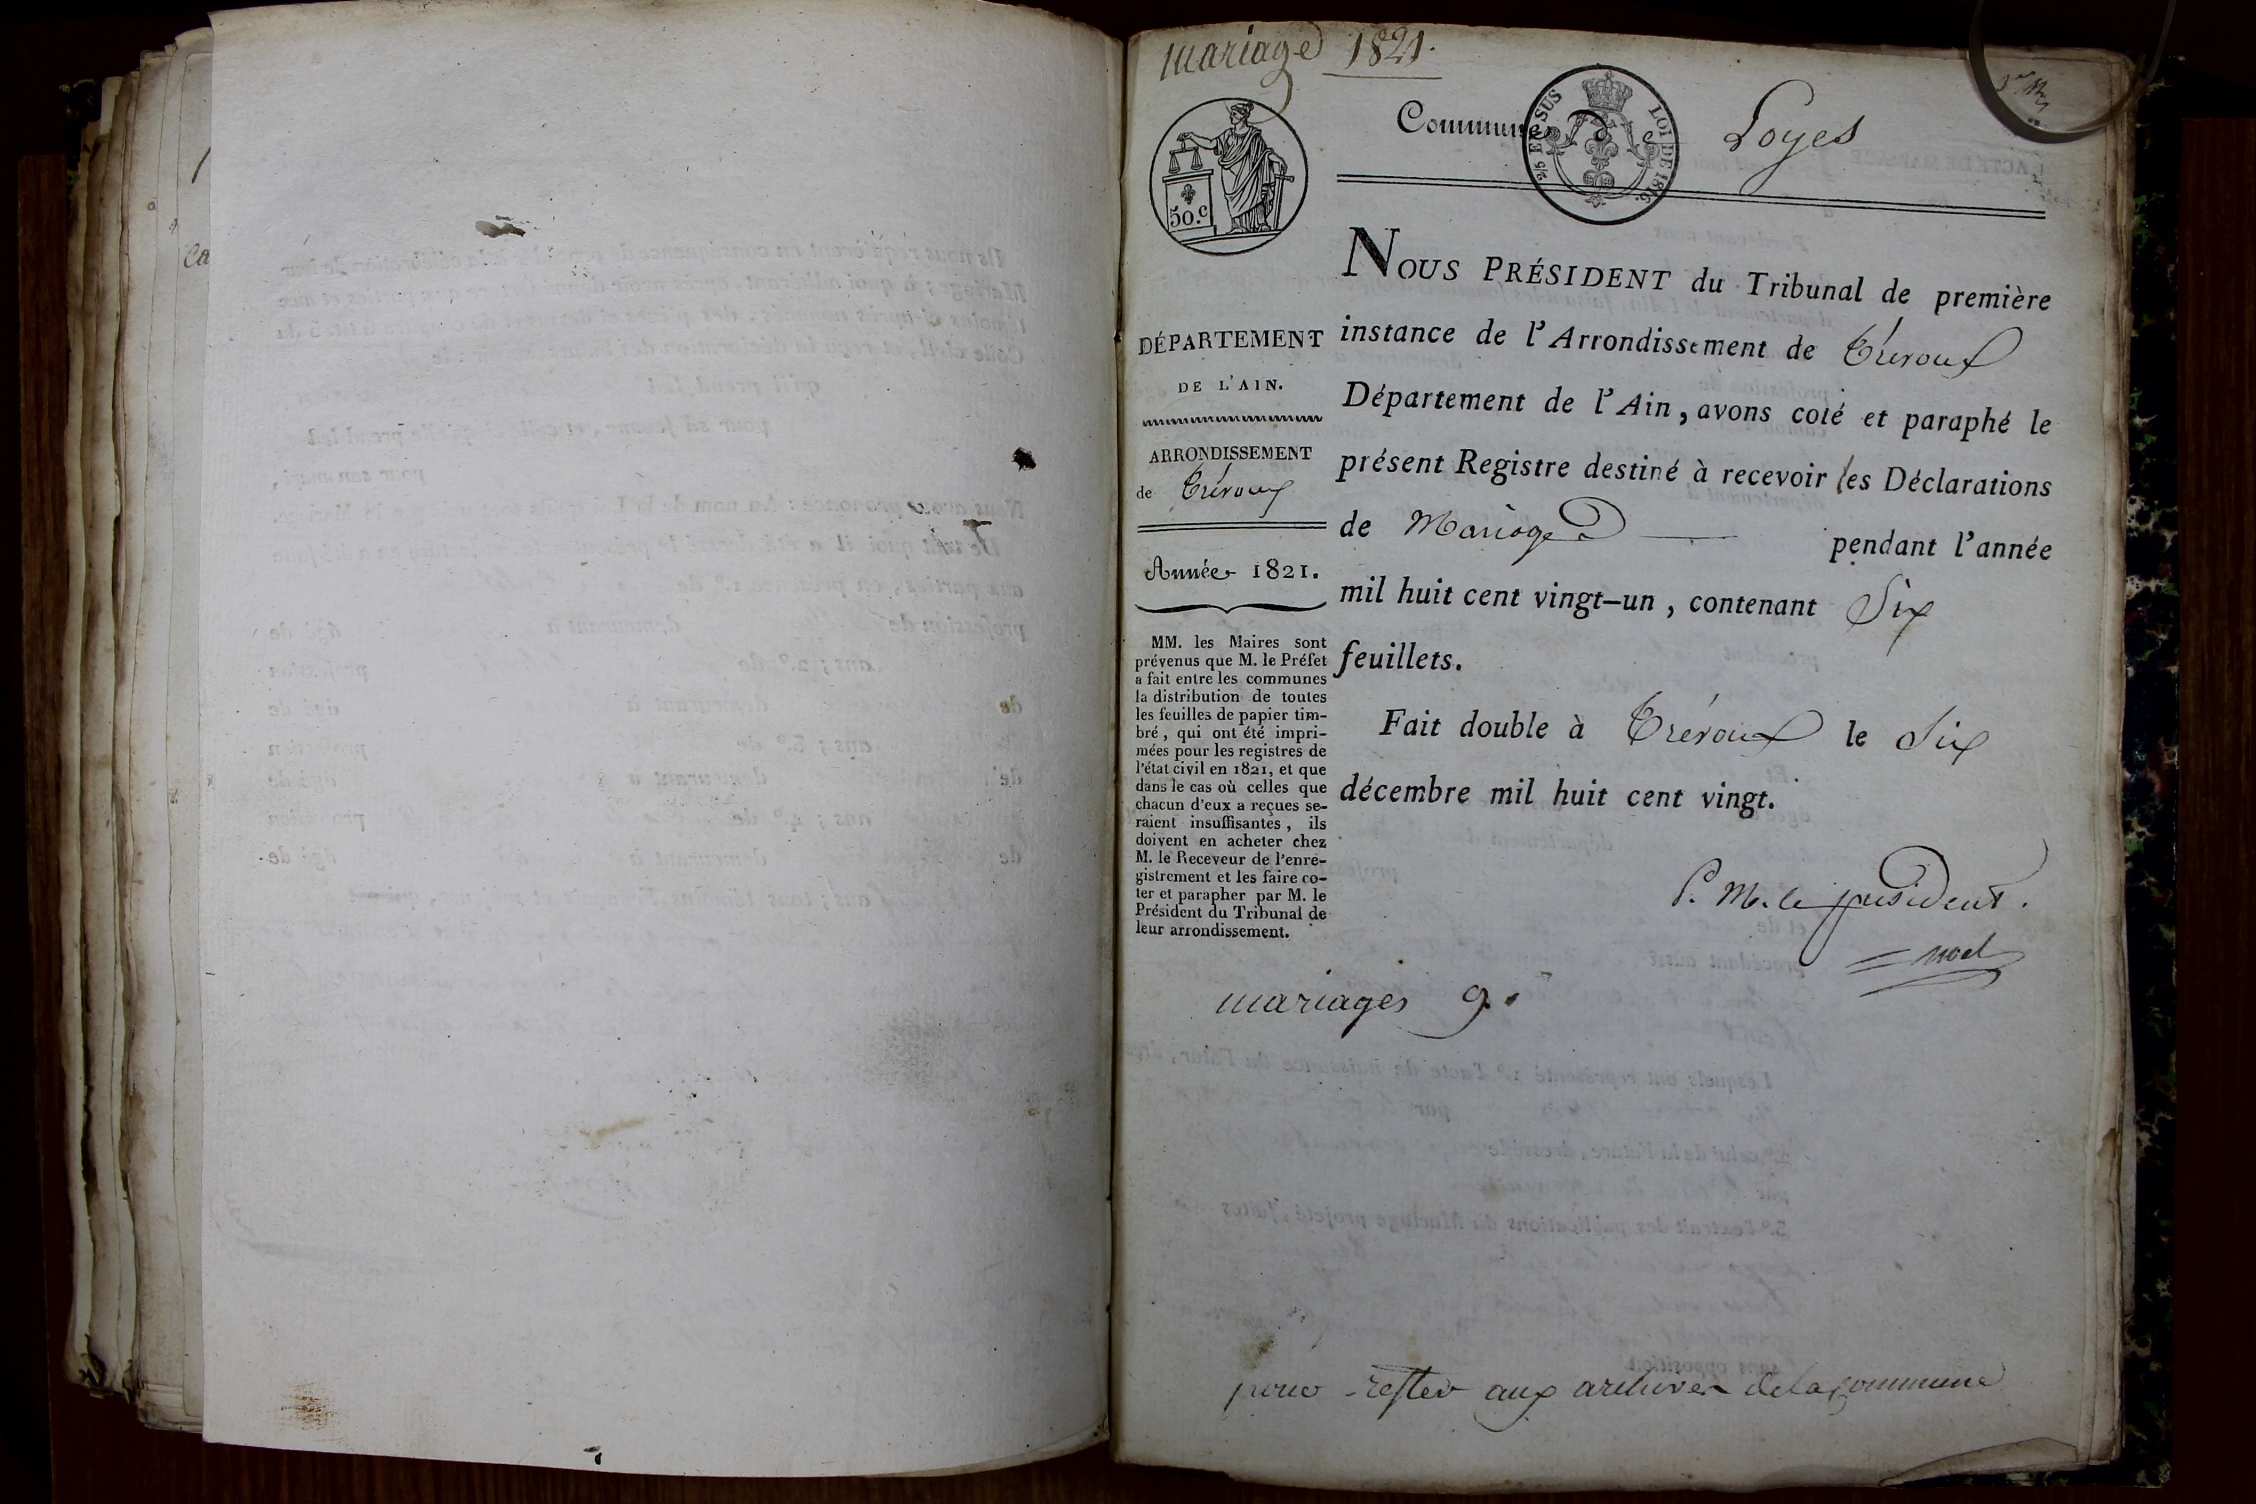 mariage 1821.
Commune de Loyes
2/5 EN SUS LOI DE 1816.
50.c
NOUS PRÉSIDENT du Tribunal de première
instance de l'Arrondissement de Trévoux
Département de l'Ain, avons coté et paraphé le
présent Registre destiné à recevoir les Déclarations
de Mariage pendant l'année
mil huit cent vingt-un, contenant Six
feuillets.
Fait double à Trévoux le Six
décembre mil huit cent vingt.
P. M. le président.
noel
DÉPARTEMENT
DE L'AIN.
ARRONDISSEMENT
de Trévoux
Année 1821.
MM. les Maires sont
prévenus que M. le Préfet
a fait entre les communes
la distribution de toutes
les feuilles de papier tim-
bré, qui ont été impri-
mées pour les registres de
l'état civil en 1821, et que
dans le cas où celles que
chacun d'eux a reçues se-
raient insuffisantes, ils
doivent en acheter chez
M. le Receveur de l'enre-
gistrement et les faire co-
ter et parapher par M. le
Président du Tribunal de
leur arrondissement.
mariages 9.
pour rester aux archives de la commune